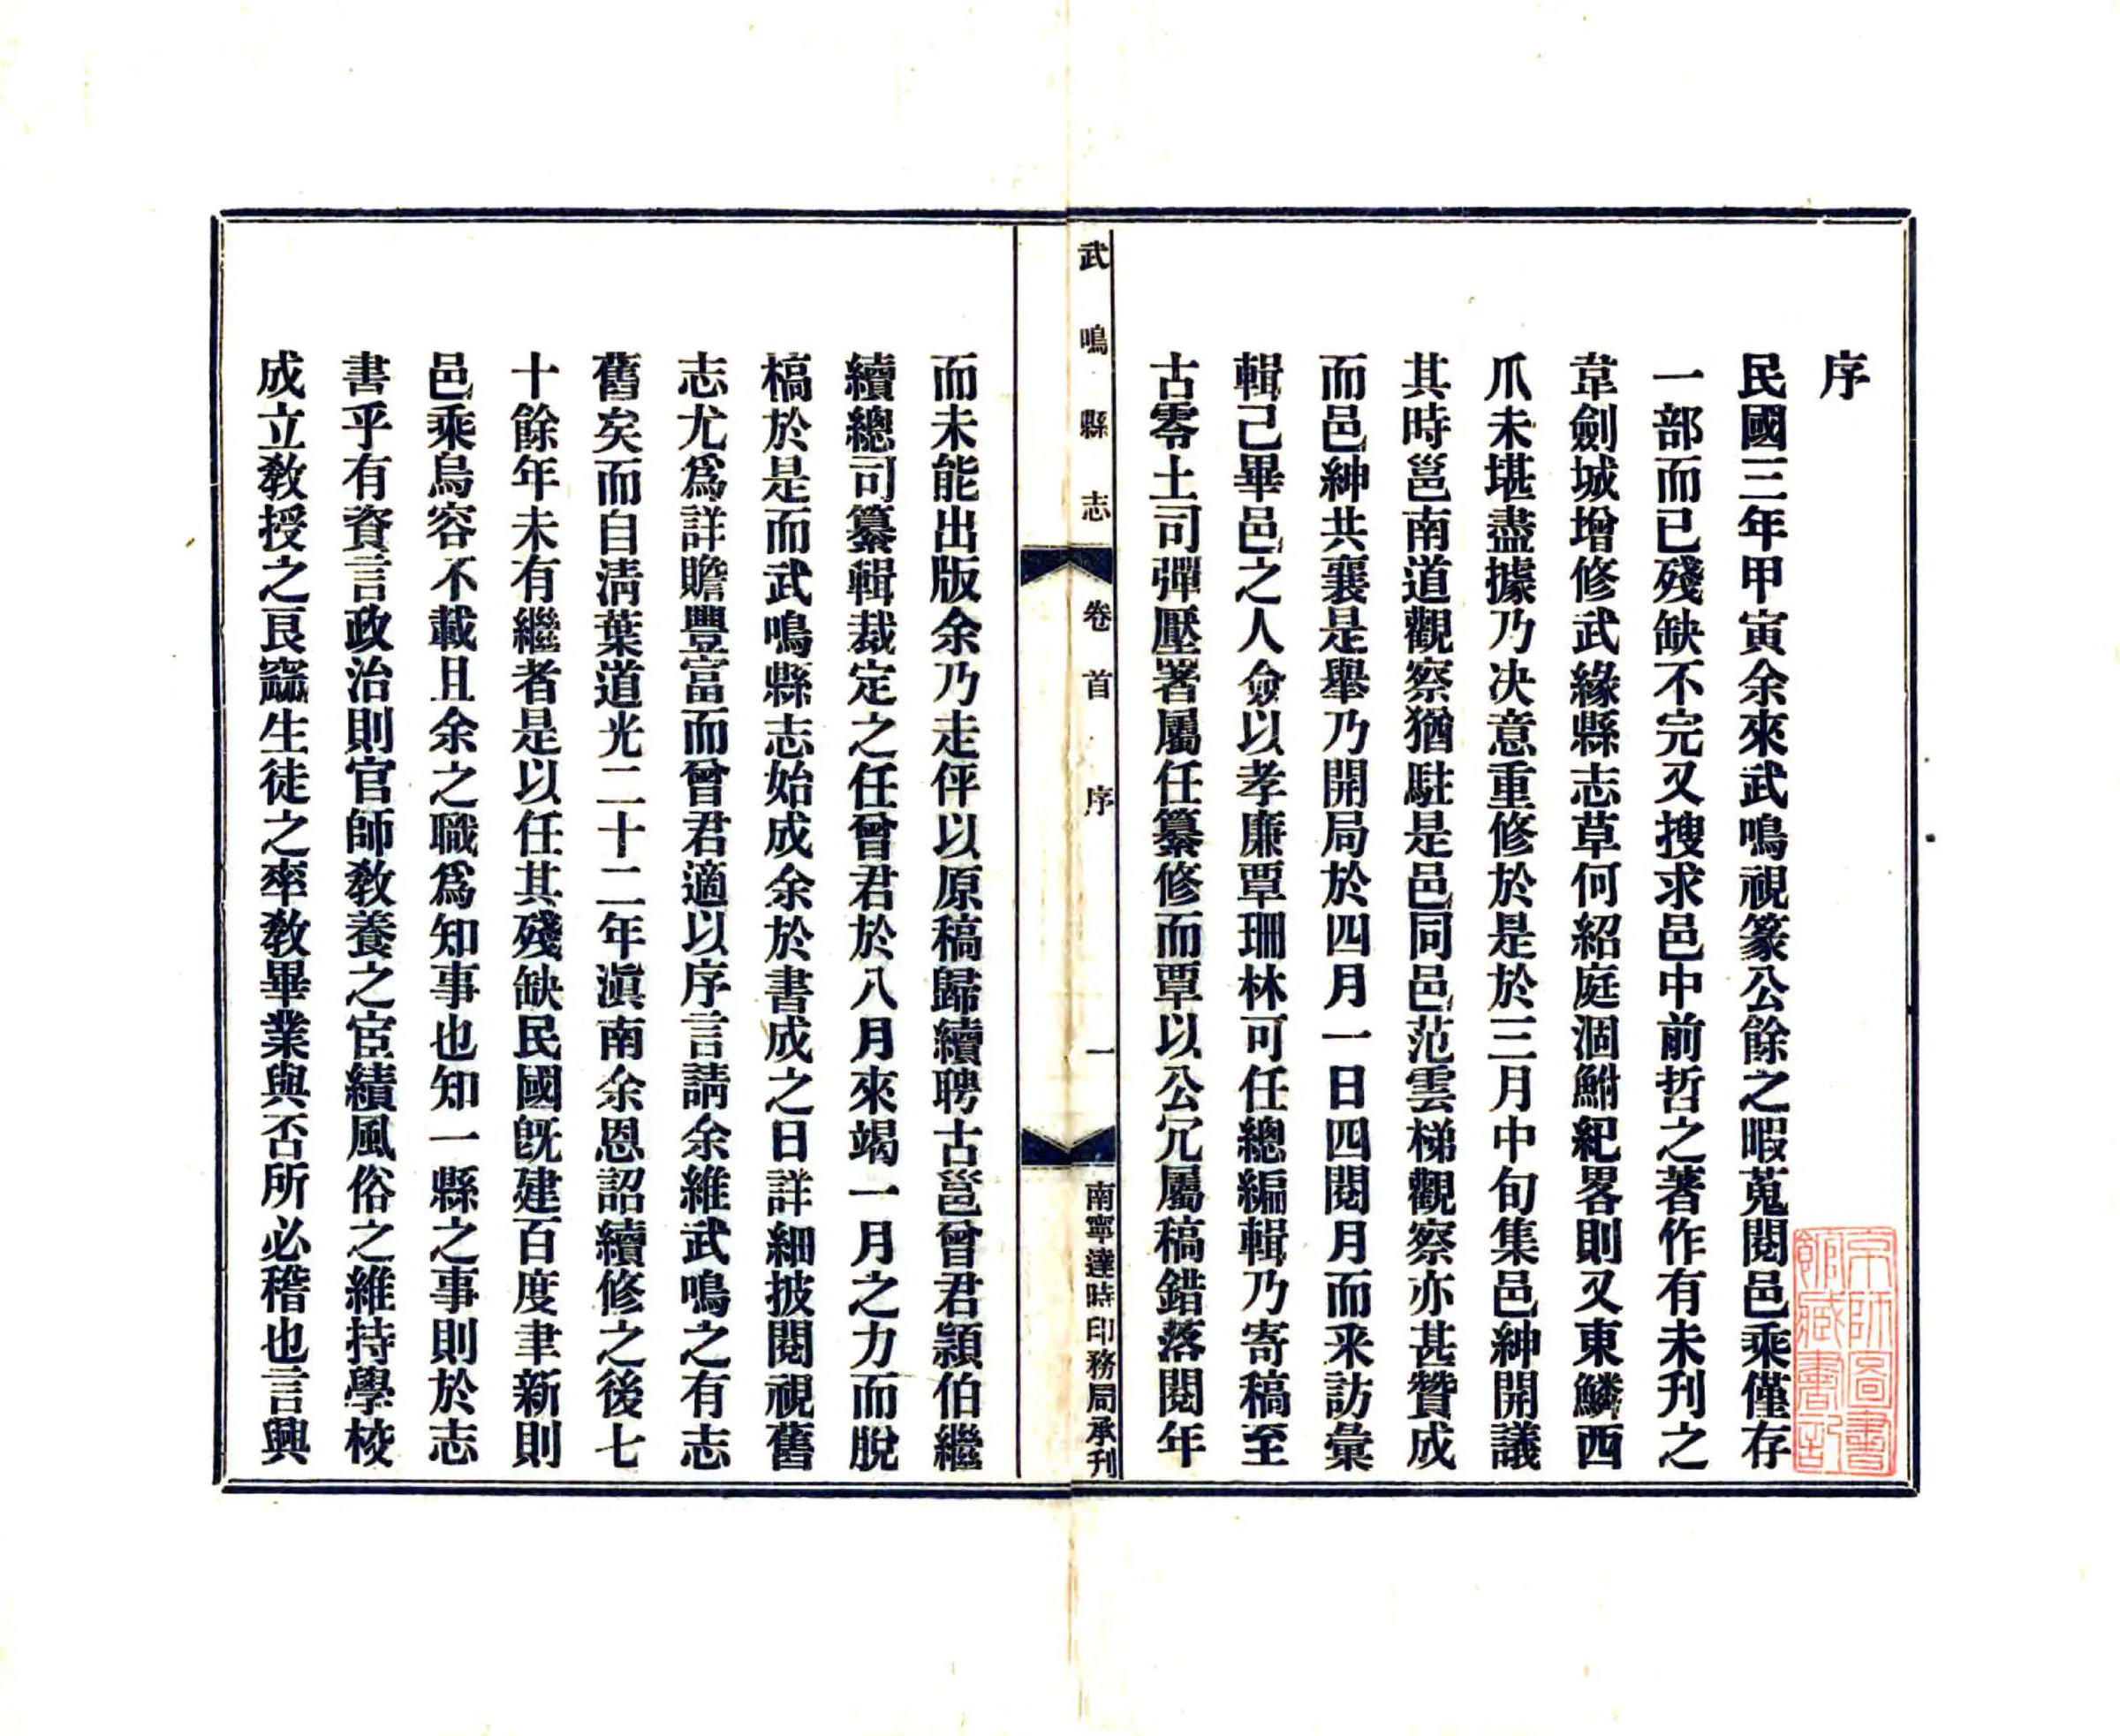 序
民國三年甲寅余來武鳴視篆公餘之暇蒐閱邑乘僅存
一部而已殘缺不完又搜求邑中前哲之著作有未刋之
韋劍城增修武緣縣志草何紹庭涸鮒紀畧則又東鱗西
爪未堪盡據乃决意重修於是於三月中旬集邑紳開議
其時邕南道觀察猶駐是邑同邑范雲梯觀察亦甚贊成
而邑紳共襄是舉乃開局於四月一日四閱月而采訪彙
輯己畢邑之人僉以孝廉覃珊林可任總編輯乃寄稿至
古零土司彈壓署屬任纂修而覃以公冗屬稿錯落閱年
武鳴縣志
卷首
序
一
南寧達時印務局承刋
而未能出版余乃走伻以原稿歸續聘古邕曾君頴伯繼
續總司纂輯裁定之任曾君於八月來竭一月之力而脫
槁於是而武鳴縣志始成余於書成之日詳細披閱視舊
志尤爲詳贍豐富而曾君適以序言請余維武鳴之有志
舊矣而自淸葉道光二十二年滇南余恩詔續修之後七
十餘年未有繼者是以任其殘缺民國旣建百度聿新則
邑乘烏容不載且余之職爲知事也知一縣之事則於志
書乎有資言政治則官師教養之宦績風俗之維持學校
成立教授之良窳生徒之率教畢業與否所必稽也言興
京師圖書
館藏書記